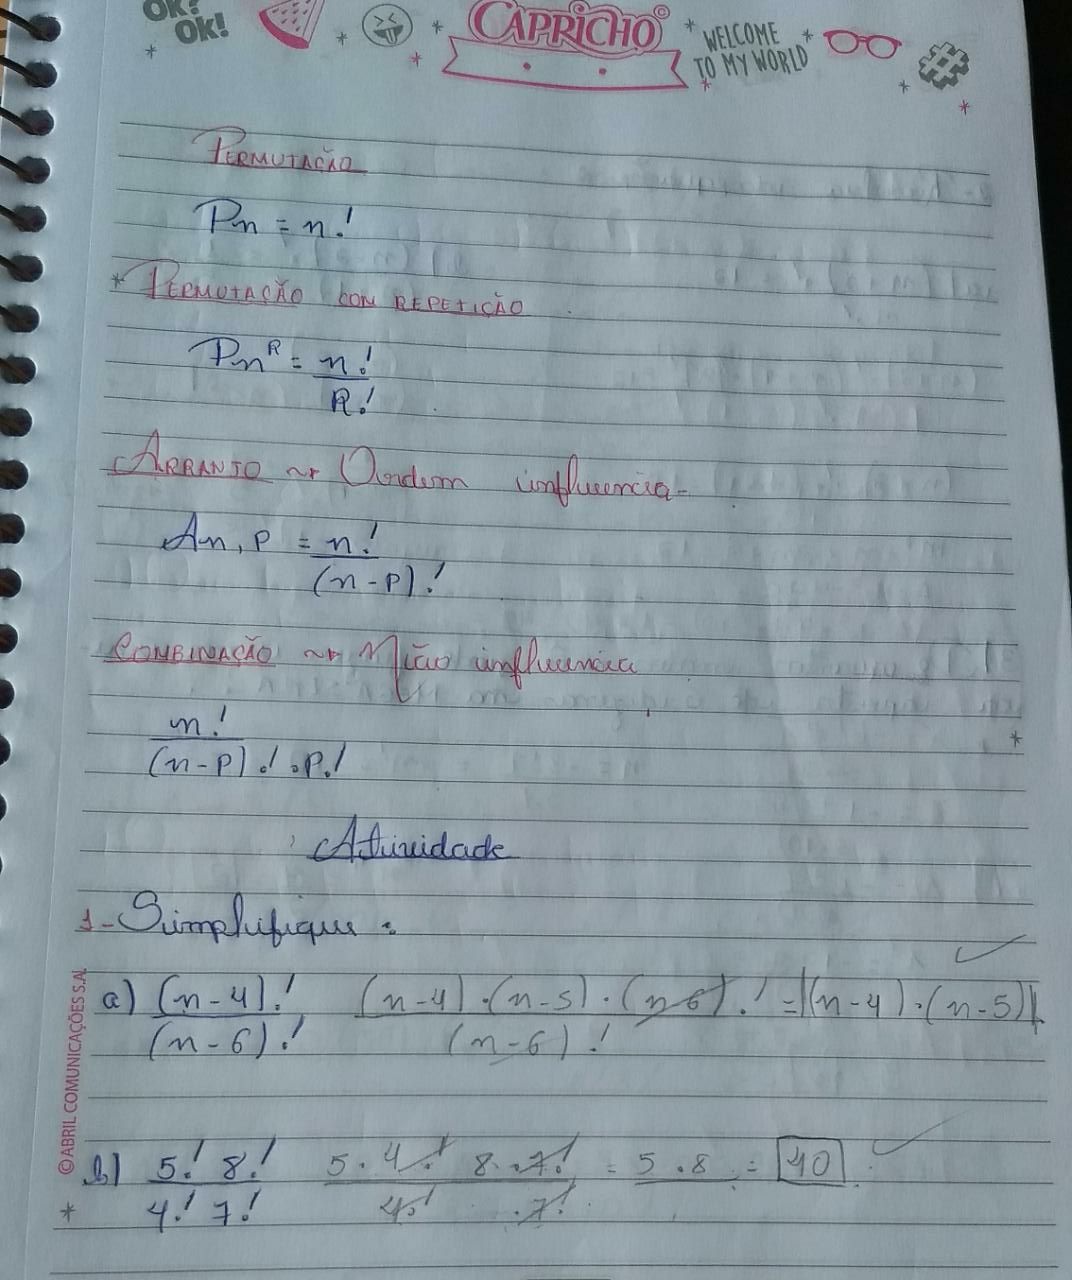 OK?
OK!
CAPRICHO©
WELCOME
TO MY WORLD
#
PERMUTAÇÃO
Pn = n!
* PERMUTAÇÃO COM REPETIÇÃO
Pn^R = n!/R!
ARRANJO ~ Ordem influencia
An,P = n!/(n-P)!
COMBINAÇÃO ~ Não influencia
n!/(n-P)!.P!
Atividade
1- Simplifique:
a) (n-4)!/(n-6)! (n-4).(n-5).(n-6)!/(n-6)! = (n-4).(n-5)
b) 5! 8!/4! 7! 5.4! 8.7!/4! .7! = 5.8 = 40
©ABRIL COMUNICAÇÕES S.A.